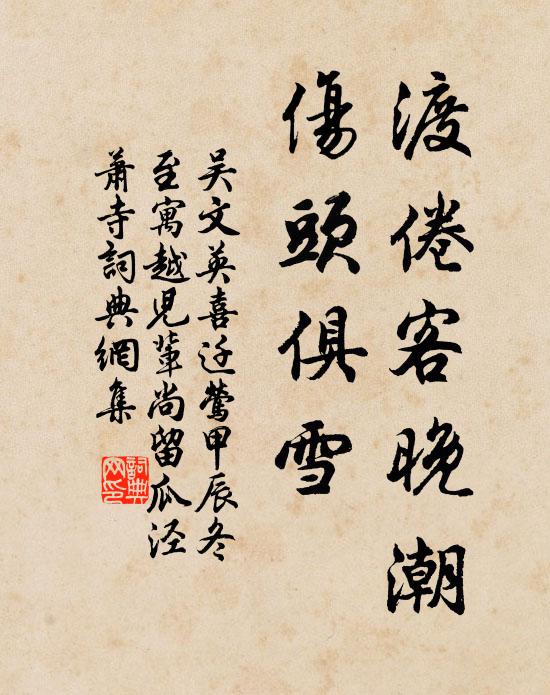 渡倦客晚潮
傷頭俱雪
吴文英喜迁鶯甲辰冬
至寓越兒輩尚留瓜泾
蕭寺詞典網集
詞典
网印